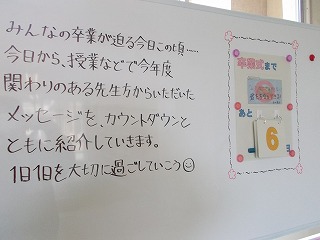 みんなの卒業が迫る今日この頃……
今日から、授業などで今年度
関わりのある先生方からいただいた
メッセージを、カウントダウンと
ともに紹介していきます。
1日1日を大切に過ごしていこう☺
卒業式まで
あと
6